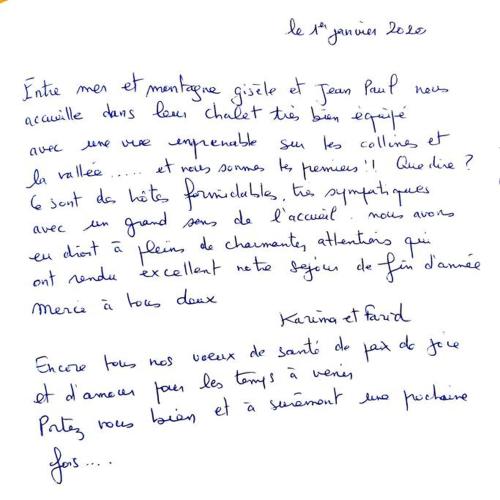 le 1er janvier 2020
Entre mer et montagne gisèle et Jean Paul nous
accuille dans leur chalet très bien équipé
avec une vue imprenable sur les collines et
la vallée ..... et nous sommes les premiers !! Que dire ?
Ce sont des hôtes formidables, très sympatiques
avec un grand sens de l'accueil. nous avons
eu droit à pleins de charmantes attentions qui
ont rendu excellent notre sejour de fin d'année
Merci à tous deux
Karima et Farid
Encore tous nos voeux de santé de paix de joie
et d'amour pour les temps à venir
Portez vous bien et à surement une prochaine
fois ....